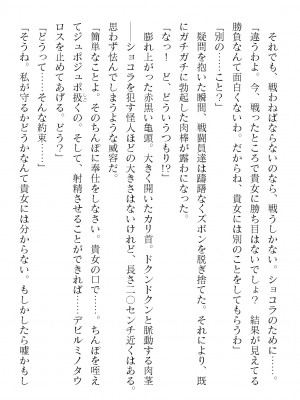 でも、戦わねばならないのなら、戦うしかない。ショコラのために……。
「違うわよ。今、戦ったところで貴女に勝ち目はないでしょ？　結果が見えてる
勝負なんて面白くないわ。だからね、貴女には別のことをしてもらうわ」
「別の……こと？」
疑問を抱いた瞬間、戦闘員達は躊躇なくズボンを脱ぎ捨てた。それにより、既
にガチガチに勃起した肉棒が露わになった。
「なっ！　ど、どういうつもり⁉」
膨れ上がった赤黒い亀頭。大きく開いたカリ首。ドクンドクンと脈動する肉茎
――ショコラを犯す怪人ほどの大きさはないけれど、長さ二〇センチ近くはある。
思わず怯んでしまうような威容だ。
「簡単なことよ。そのちんぽに奉仕をしなさい。貴女の口で……。ちんぽを咥え
てジュポジュポ扱くの。そして、射精させることができれば……デビルミノタウ
ロスを止めてあげる。どう？」
「どうって……そんな約束……」
「そうね。私が守るかどうかなんて貴女には分からない。もしかしたら嘘かもし